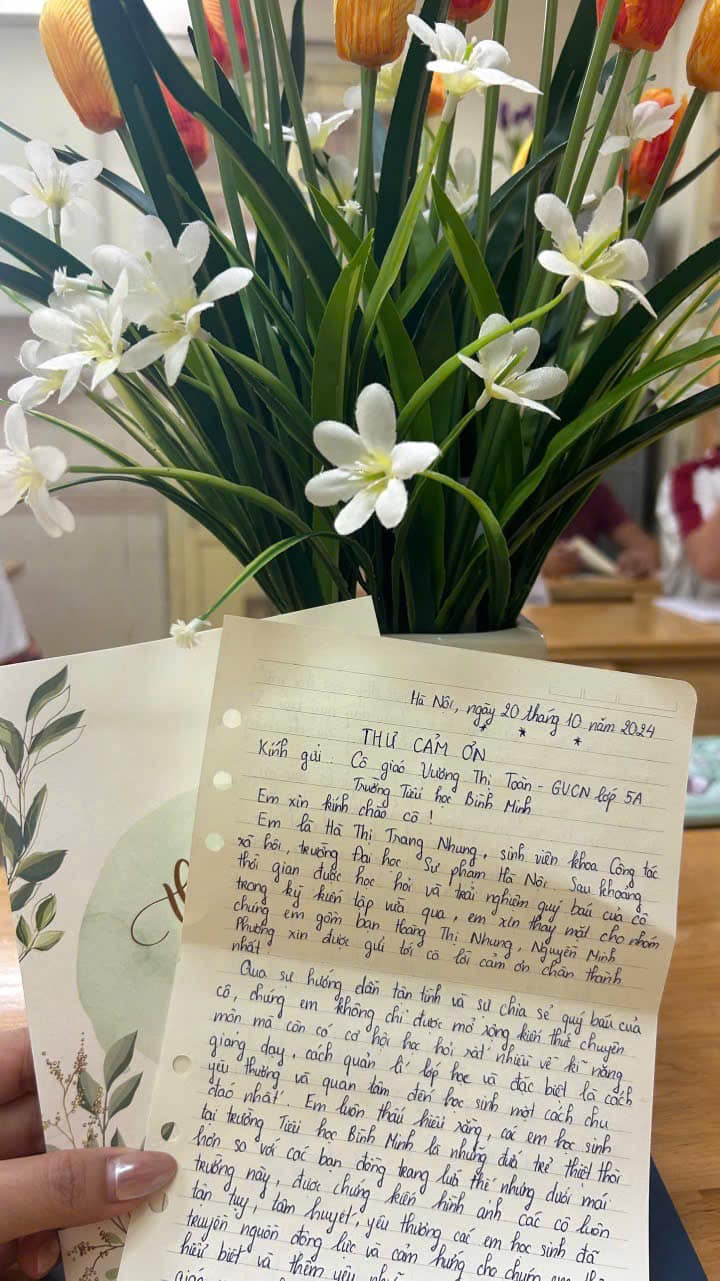 Hà Nội, ngày 20 tháng 10 năm 2024
* * *
THƯ CẢM ƠN
Kính gửi : Cô giáo Vương Thị Toàn - GVCN lớp 5A
Trường Tiểu học Bình Minh
Em xin kính chào cô !
Em là Hà Thị Trang Nhung, sinh viên khoa Công tác
xã hội, trường Đại học Sư phạm Hà Nội. Sau khoảng
thời gian được học hỏi và trải nghiệm quý báu của cô
trong kỳ kiến tập vừa qua, em xin thay mặt cho nhóm
chúng em gồm bạn Hoàng Thị Nhung, Nguyễn Minh
Phương xin được gửi tới cô lời cảm ơn chân thành
nhất.
Qua sự hướng dẫn tận tình và sự chia sẻ quý báu của
cô, chúng em không chỉ được mở rộng kiến thức chuyên
môn mà còn có cơ hội học hỏi rất nhiều về kĩ năng
giảng dạy, cách quản lí lớp học và đặc biệt là cách
yêu thương và quan tâm đến học sinh một cách chu
đáo nhất. Em luôn thấu hiểu rằng, các em học sinh
tại trường Tiểu học Bình Minh là những đứa trẻ thiệt thòi
hơn so với các bạn đồng trang lứa thế nhưng dưới mái
trường này, được chứng kiến hình ảnh các cô luôn
tận tụy, tâm huyết, yêu thương các em học sinh đã
truyền nguồn động lực và cảm hứng cho chúng em
hiểu biết và thêm yêu
giáo